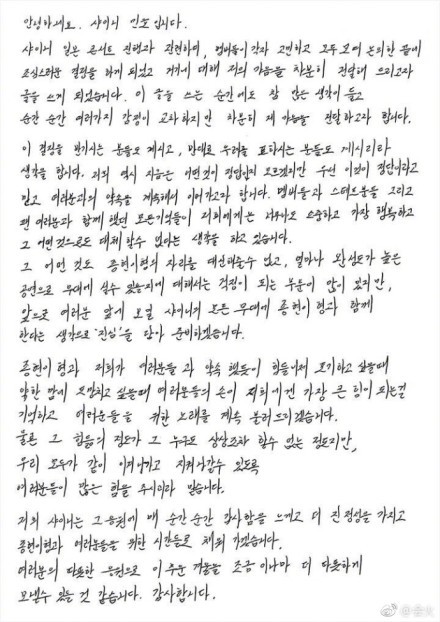 안녕하세요. 샤이니 민호입니다.
샤이니 일본 콘서트 진행과 관련하여, 멤버들이 각자 고민하고 모두 모여 논의한 끝에
조심스러운 결정을 하게 되었고 거기에 대해 저의 마음을 차분히 전달해 드리고자
글을 쓰게 되었습니다. 이 글을 쓰는 순간에도 참 많은 생각이 들고
순간 순간 여러가지 감정이 교차하지만 차분히 제 마음을 전달하고자 합니다.
이 결정을 반기시는 분들도 계시고, 반대로 우려를 표하시는 분들도 계시리라
생각을 합니다. 저희 역시 지금은 어떤것이 정답일지 모르겠지만 우선 이것이 정답이라고
믿고 여러분과의 약속을 계속해서 이어가고자 합니다. 멤버들과 스태프분들 그리고
팬 여러분과 함께 했던 모든기억들이 저희에게는 너무나도 소중하고 가장 행복하고
그 어떤것으로도 대체할수 없다는 생각을 하고 있습니다.
그 어떤 것도 종현이형의 자리를 대신해줄수 없고, 얼마나 완성도가 높은
공연으로 무대에 설수 있을지에 대해서는 걱정이 되는 부분이 많이 있지만,
앞으로 여러분 앞에 보일 샤이니의 모든 무대에 종현이형과 함께
한다는 생각으로 '진심'을 담아 준비하겠습니다.
종현이형과 저희가 여러분들과 약속 했듯이 힘들어서 포기하고 싶을때
약한 맘에 도망치고 싶을때 여러분들의 손이 저희에겐 가장 큰 힘이 되는걸
기억하고 여러분들을 위한 노래를 계속 불러드리겠습니다.
물론 그 힘듦의 정도가 그 누구도 상상조차 할수 없는 정도지만,
우리 모두가 같이 이겨나가고 지켜나갈수 있도록
여러분들이 많은 힘을 주시리라 믿습니다.
저희 샤이니는 그 응원에 매 순간순간 감사함을 느끼고 더 진정성을 가지고
종현이형과 여러분들을 위한 시간들로 채워 가겠습니다.
여러분의 따뜻한 응원으로 이 추운 겨울을 조금이나마 더 따듯하게
보낼수 있을 것 같습니다. 감사합니다.